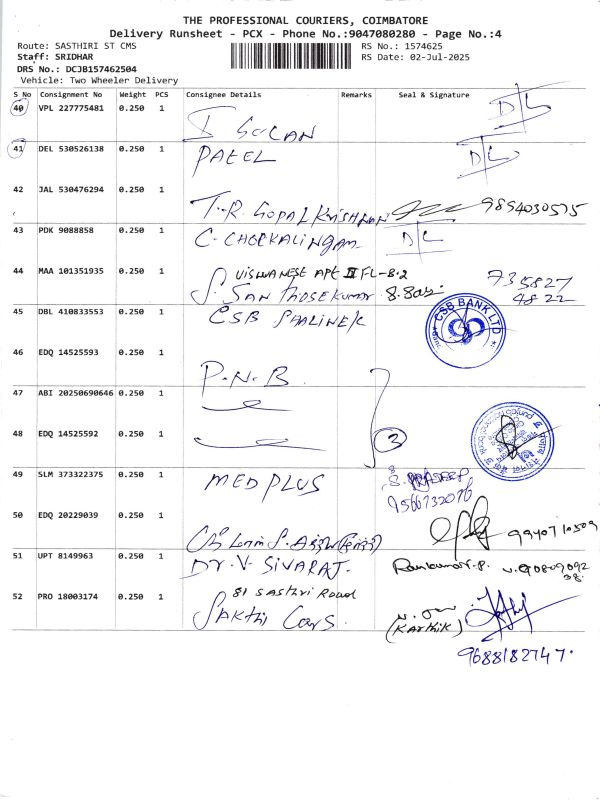 THE PROFESSIONAL COURIERS, COIMBATORE
Delivery Runsheet - PCX - Phone No.:9047080280 - Page No.:4
Route: SASTHIRI ST CMS
RS No.: 1574625
Staff: SRIDHAR
RS Date: 02-Jul-2025
DRS No.: DCJB157462504
Vehicle: Two Wheeler Delivery
S No Consignment No Weight PCS Consignee Details Remarks Seal & Signature
40 VPL 227775481 0.250 1 D/L
41 DEL 530526138 0.250 1 PATEL D/L
42 JAL 530476294 0.250 1 T.R. GOPAL KRISHNAN 9894030575
43 PDK 9088858 0.250 1 C. CHOCKALINGAM D/L
44 MAA 101351935 0.250 1 VISWANESE APT II FL-B.2
S. SANTHOSEKUMAR 735827
4822
45 DBL 410833553 0.250 1 CSB
CSB BANK LTD
46 EDQ 14525593 0.250 1 P.N.B
47 ABI 20250690646 0.250 1
48 EDQ 14525592 0.250 1 3
49 SLM 373322375 0.250 1 MEDPLUS
S. PRADEEP
9566732076
50 EDQ 20229039 0.250 1 9940710509
51 UPT 8149963 0.250 1 Dr. V. SIVARAJ.
52 PRO 18003174 0.250 1 81 Sasthri Road
Sakthi Cars.
(Karthik)
9688182747.